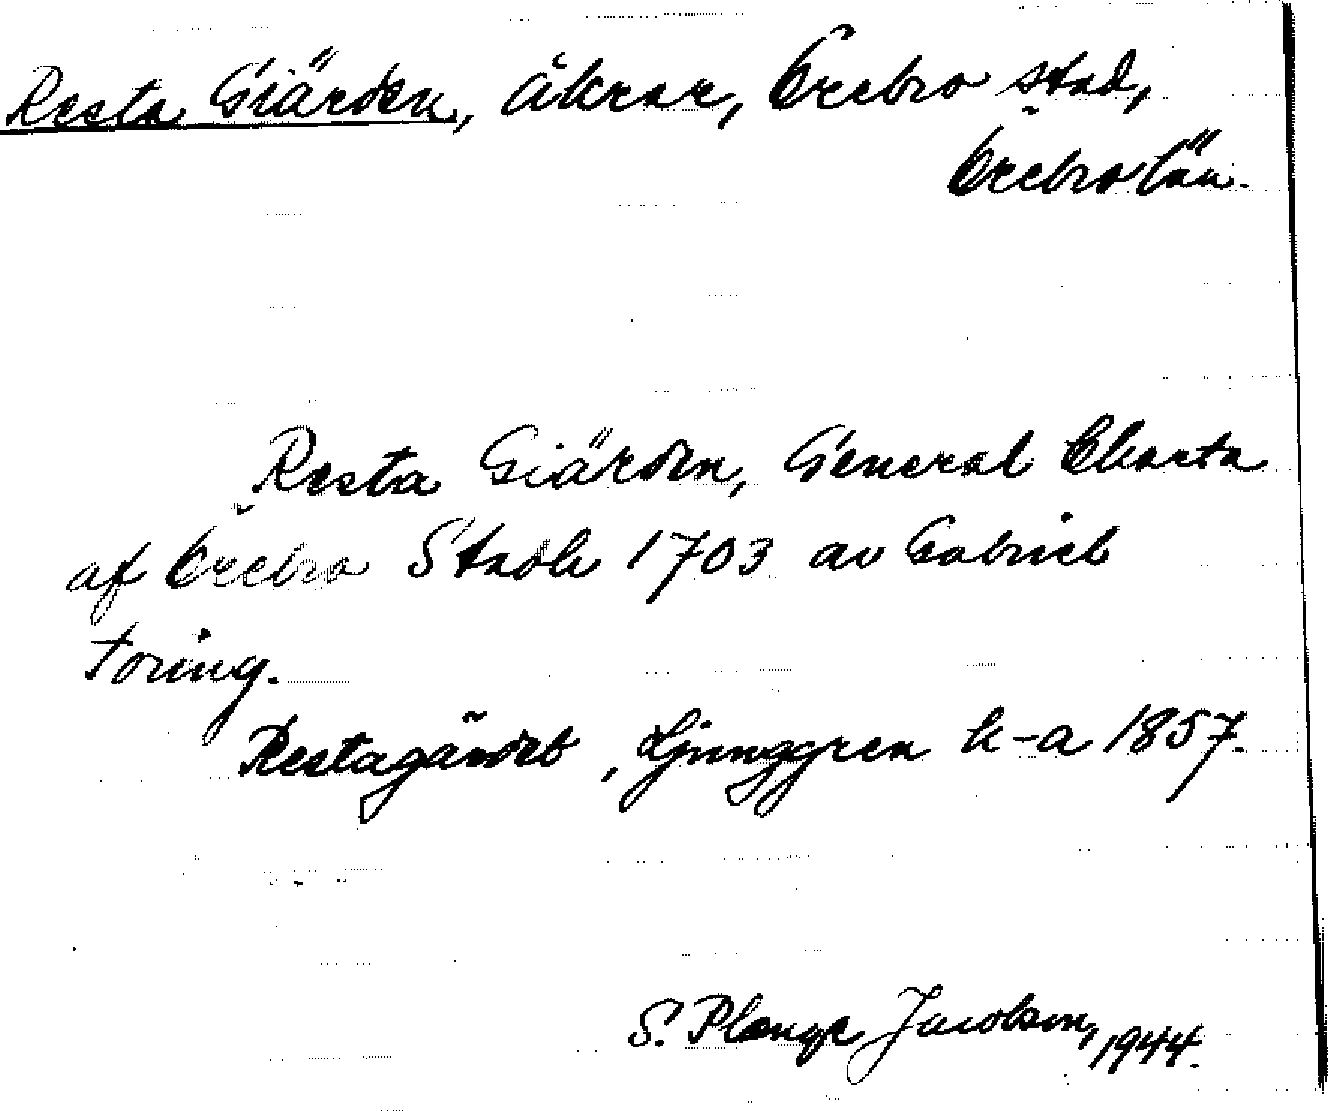 Resta Giärden, åkrar, Örebro stad,
Örebro län.
Resta Giärden, General Charta
af Örebro Stadh 1703 av Gabriel
Toring.
Restagärdet, Ljunggren k-a 1857.
S. Plange Jacobson, 1944.